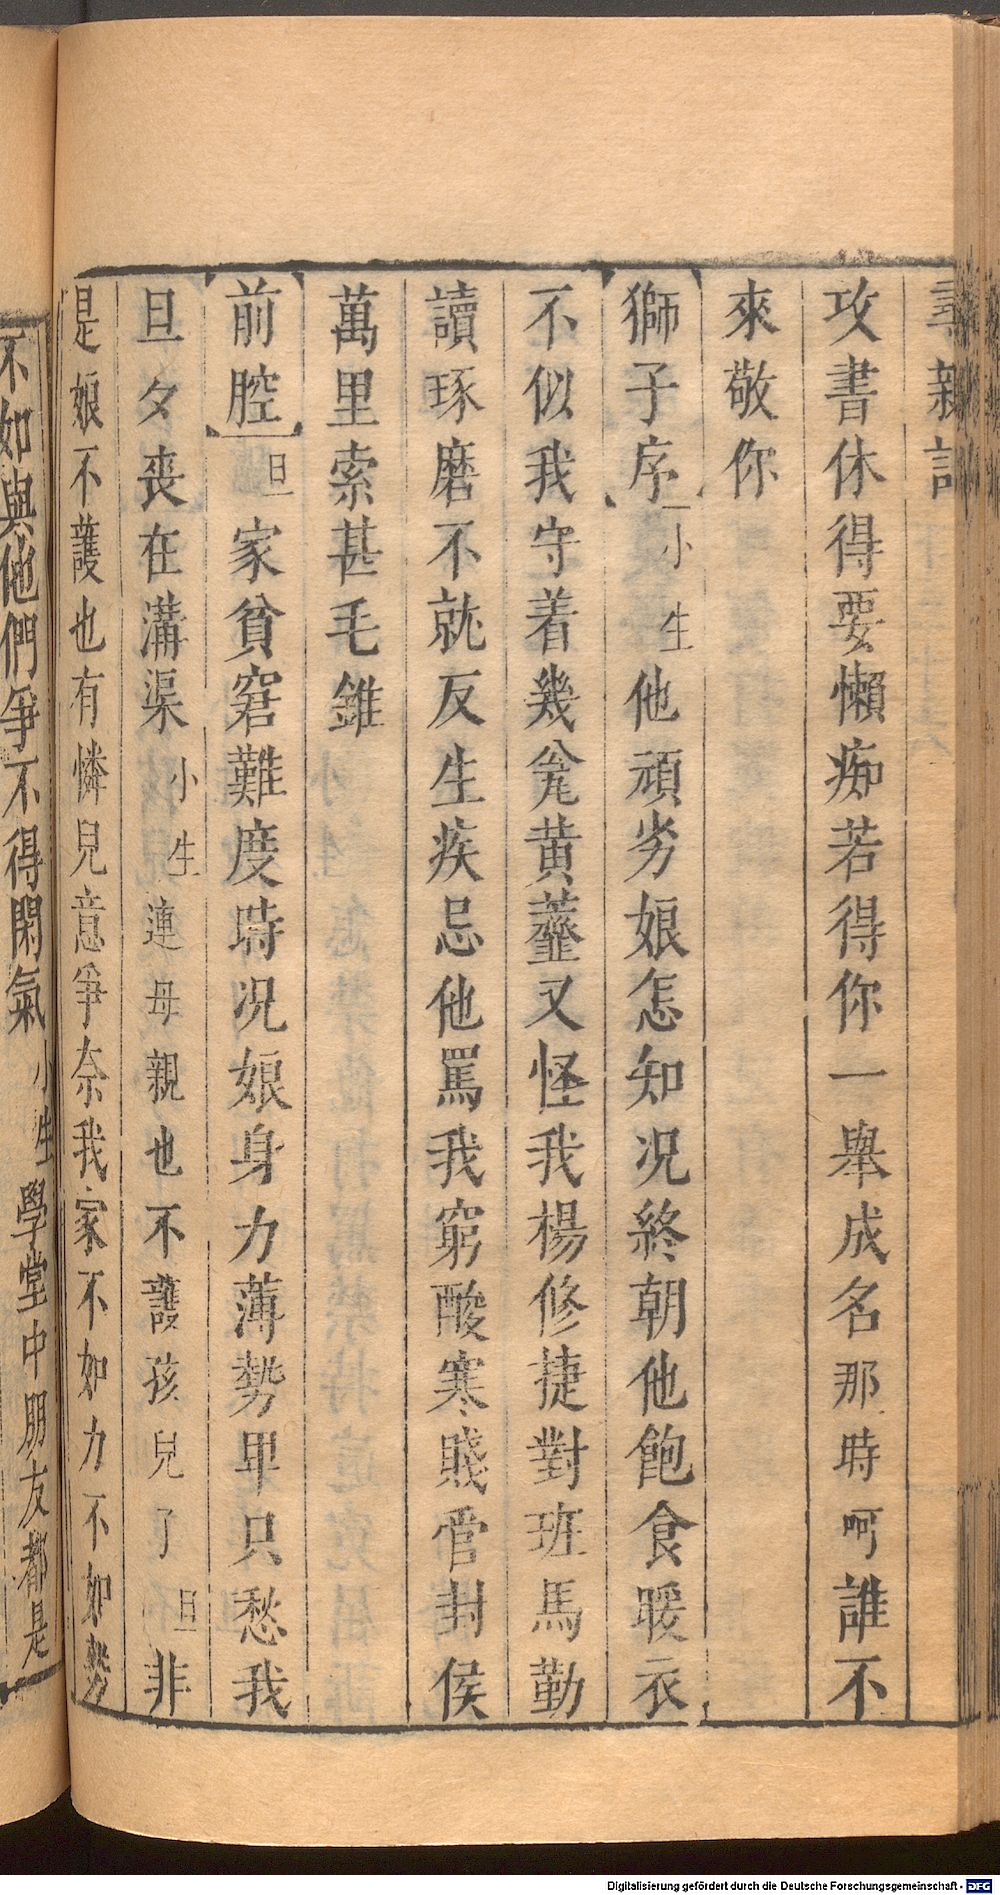 尋親記
攻書休得要懶痴若得你一舉成名那時呵誰不
來敬你
獅子序小生他頑劣娘怎知况終朝他飽食暖衣
不似我守着幾瓮黄虀又怪我楊修捷對班馬勤
讀琢磨不就反生疾忌他罵我窮酸寒賤官封侯
萬里索甚毛錐
前腔旦家貧窘難度時况娘身力薄勢卑只愁我
旦夕喪在溝渠小生連母親也不護孩兒了旦非
是娘不護也有憐兒意爭奈我家不如力不如勢
不如與他們爭不得閑氣小生學堂中朋友都是
Digitalisierung gefördert durch die Deutsche Forschungsgemeinschaft - DFG